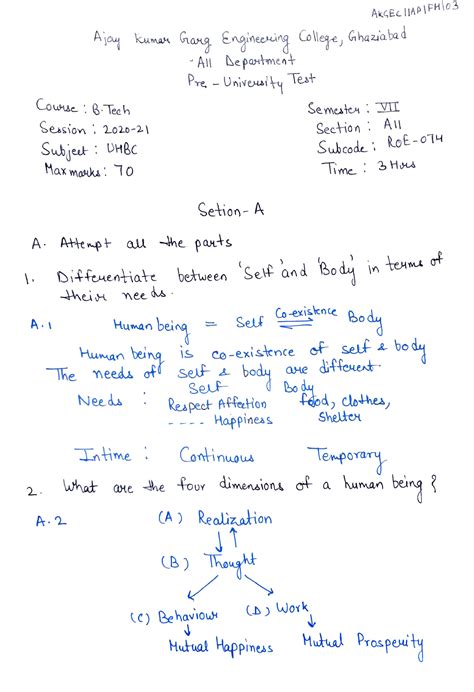 AKGEC/IAP/FM/03
Ajay Kumar Garg Engineering College, Ghaziabad
- All Department
Pre - University Test
Course : B.Tech
Semester : VII
Session : 2020-21
Section : All
Subject : UHBC
Subcode : ROE-074
Max marks : 70
Time : 3 Hrs
Setion - A
A. Attempt all the parts
1. Differentiate between 'Self' and 'Body' in terms of
their needs.
A.1 Human being = Self Co-existence Body
Human being is co-existence of self & body
The needs of self & body are different.
Self Body
Needs : Respect Affection food, clothes,
---- Happiness shelter
Intime : Continuous Temporary
2. What are the four dimensions of a human being?
A.2 (A) Realization
(B) Thought
(C) Behaviour (D) Work
Mutual Happiness Mutual Prosperity